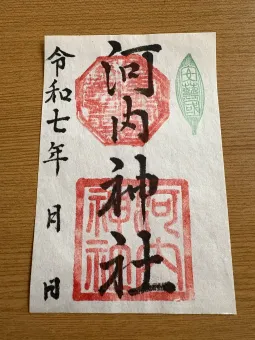 河内神社
令和七年 月 日
安藝國
河内神社